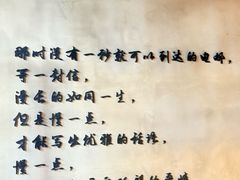 那时没有一秒就可以到达的电邮，
等一封信，
漫长的如同一生，
但是慢一点，
才能写出优雅的话语，
慢一点，